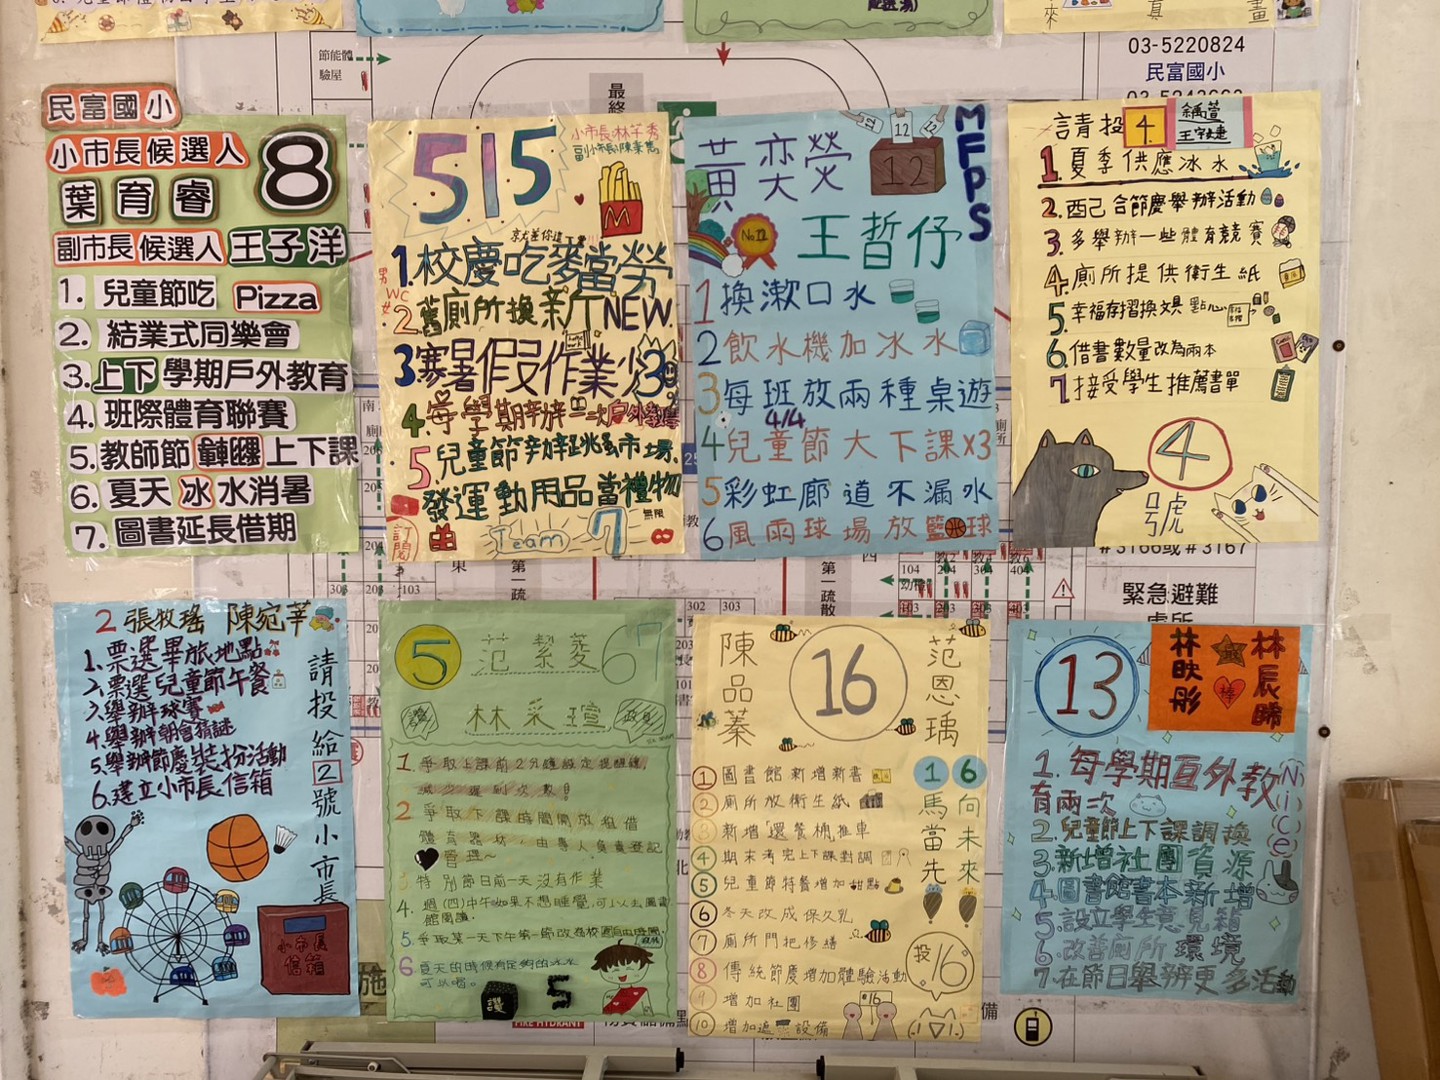 節能體
驗屋
最終
03-5220824
民富國小
民富國小
小市長候選人
8
葉育睿
副市長候選人 王子洋
1. 兒童節吃 Pizza
2. 結業式同樂會
3. 上下學期戶外教育
4. 班際體育聯賽
5. 教師節 上下課
6. 夏天冰水消暑
7. 圖書延長借期
515
小市長林芊秀
1. 校慶吃麥當勞
男女WC
2 舊廁所換新 NEW
3 寒暑假作業少
4. 每學期辦二次戶外教學
5 兒童節辦跳蚤市場.
發運動用品當禮物
訂閱
Team 7
無限
黃奕熒
12
12
MFPS
No.12
王晢仔
1 換漱口水
2 飲水機加冰水
3 每班放兩種桌遊
4/4
4 兒童節大下課x3
5 彩虹廊道不漏水
6 風雨球場放籃球
請投 4.
1. 夏季供應冰水
2. 配合節慶舉辦活動
3. 多舉辦一些體育競賽
4. 廁所提供衛生紙
5. 幸福存摺換文具 點心
6. 借書數量改為兩本
7. 接受學生推薦書單
4
號
#3166或#3167
緊急避難
2 張牧瑤 陳宛莘
1. 票選畢旅地點
2. 票選兒童節午餐
3. 舉辦球賽
4. 舉辦朝會猜謎
5. 舉辦節慶裝扮活動
6. 建立小市長信箱
請投給2號小市長
小市長
信箱
5 范絜菱 67
讚
林采瑄
政見
1. 爭取上課前2分鐘設定提醒鐘,
減少遲到次數!
2 爭取下課時間開放租借
體育器材,由專人負責登記
管理~
3. 特別節日前一天沒有作業
4. 週(四)中午如果不想睡覺,可以去圖書
館閱讀.
5. 爭取某一天下午第一節改為校園自由時間.
6. 夏天的時候有足夠的冰水
可以喝.
讚 5
陳品蓁
16
范恩瑀
1 6
馬當先
向未來
① 圖書館新增新書
② 廁所放衛生紙
③ 新增「還餐桶」推車
④ 期末考完上下課對調
⑤ 兒童節特餐增加甜點
⑥ 冬天改成保久乳
⑦ 廁所門把修繕
⑧ 傳統節慶增加體驗活動
⑨ 增加社團
⑩ 增加遊戲設備
投16
#16
13
林映彤
棒
林辰晞
1. 每學期戶外教
有兩次
Nice
2. 兒童節上下課調換
3. 新增社團資源
4. 圖書館書本新增
5. 設立學生意見箱
6. 改善廁所環境
7. 在節日舉辦更多活動
FIRE HYDRANT